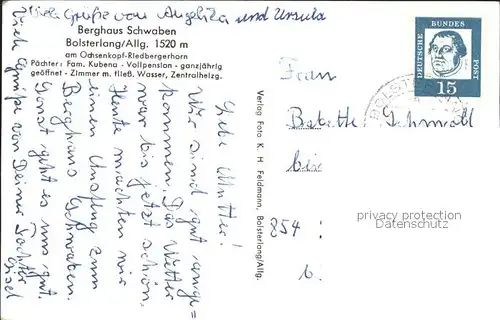 Viele Grüße von Angelika und Ursula
Berghaus Schwaben
Bolsterlang/Allg. 1520 m
am Ochsenkopf-Riedbergerhorn
Pächter: Fam. Kubena - Vollpension - ganzjährig
geöffnet - Zimmer m. fließ. Wasser, Zentralheizg.
Liebe Mutter!
Wir sind gut ange=
kommen. Das Wetter
war bis jetzt schön.
Heute machten wir
einen Ausflug zum
Berghaus Schwaben.
Sonst geht es uns gut.
Viele Grüße von Deiner Tochter
Gisel
Verlag Foto K. H. Feldmann, Bolsterlang/Allg.
DEUTSCHE
BUNDES
POST
15
Frau
Babette
bei
854
b.
privacy protection
Datenschutz